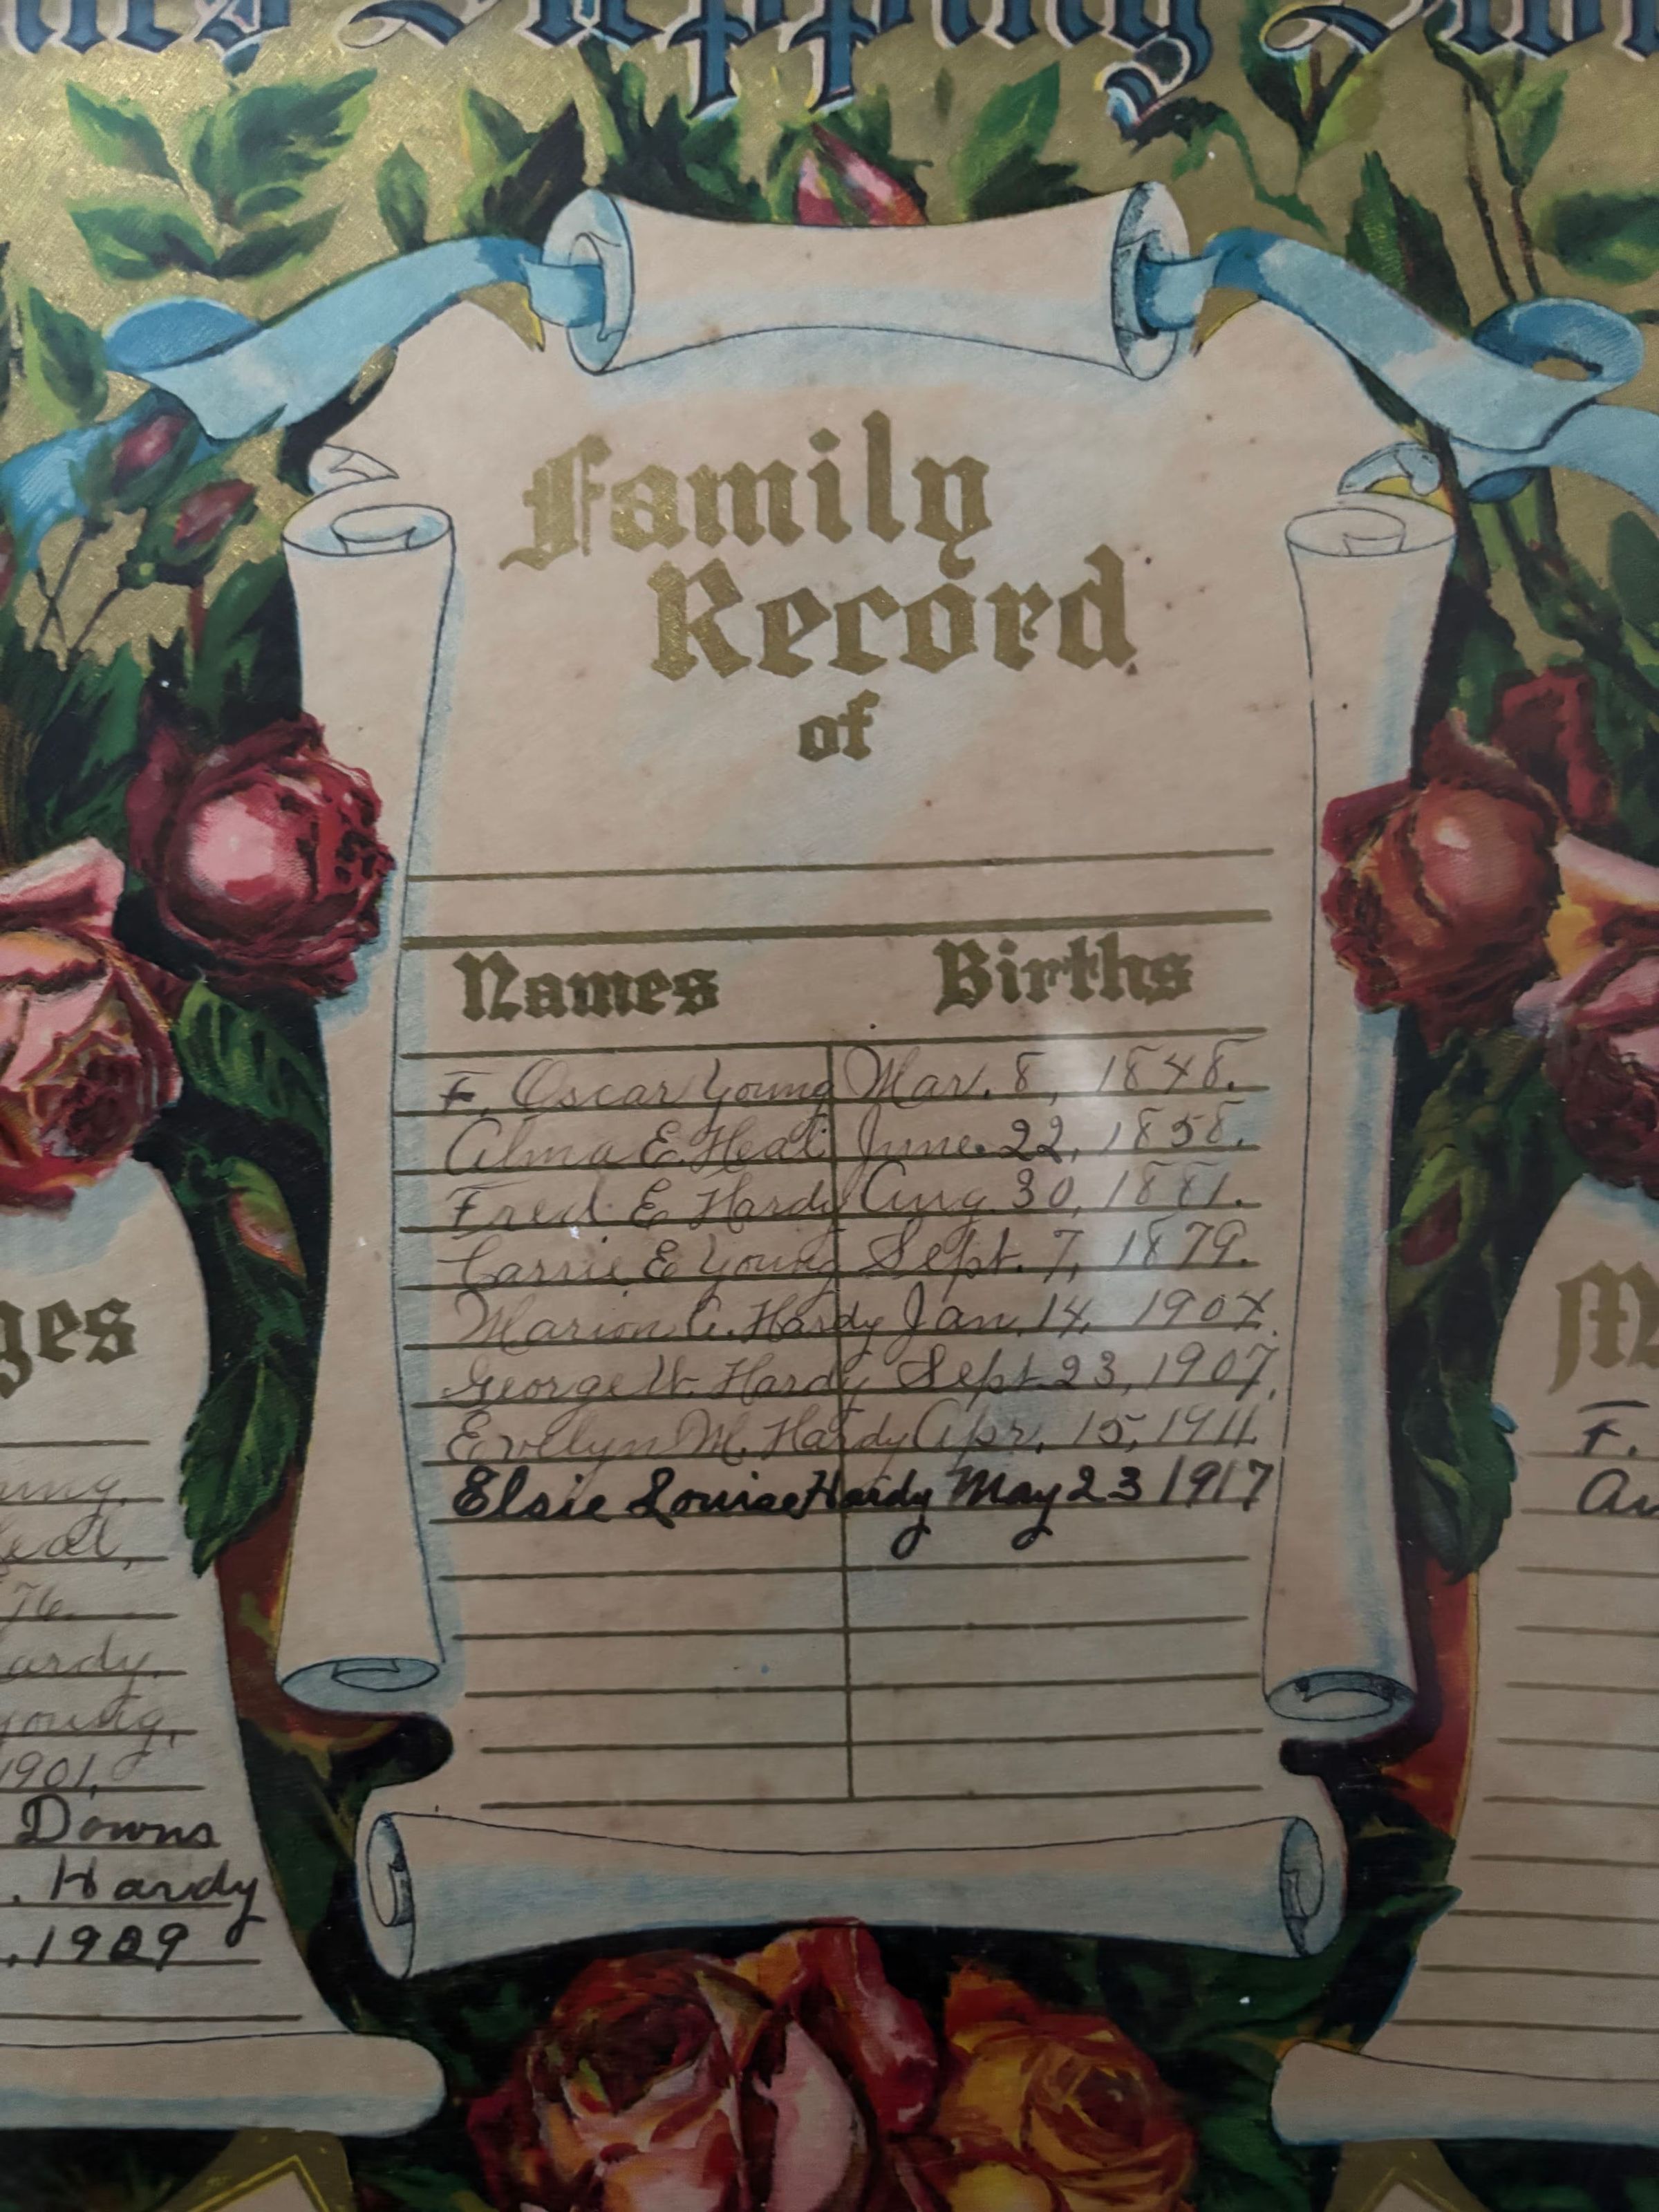 Family
Record
of
Names Births
F. Oscar Young Mar. 8, 1848.
Alma E. Heal June. 22, 1858.
Fred E Hardy Aug. 30, 1881.
Carrie E Young Sept. 7, 1879.
Marion C. Hardy Jan. 14, 1904.
George W. Hardy Sept 23, 1907.
Evelyn M. Hardy Apr. 15, 1911.
Elsie Louise Hardy May 23 1917
ges
ung.
eal,
76.
ardy.
Young,
1901,
Downs
. Hardy
.1929
M
F.